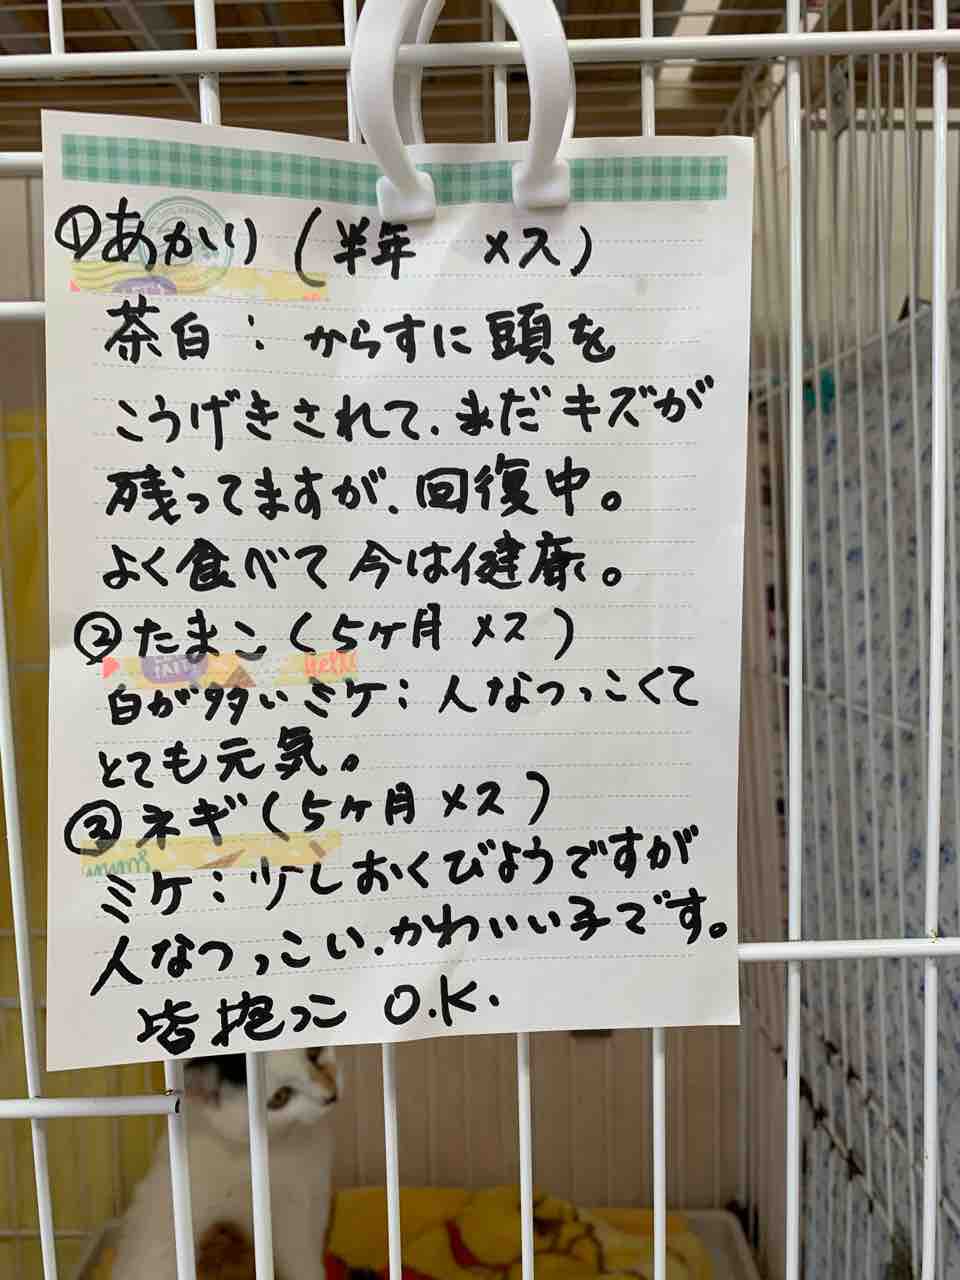 ①あかり(半年 メス)
茶白：からすに頭を
こうげきされて、まだキズが
残ってますが、回復中。
よく食べて今は健康。
②たまこ(5ヶ月 メス)
白が多いミケ：人なつっこくて
とても元気。
③ネギ(5ヶ月 メス)
ミケ：少しおくびようですが
人なつっこい、かわいい子です。
皆抱っこ O.K.
Hello